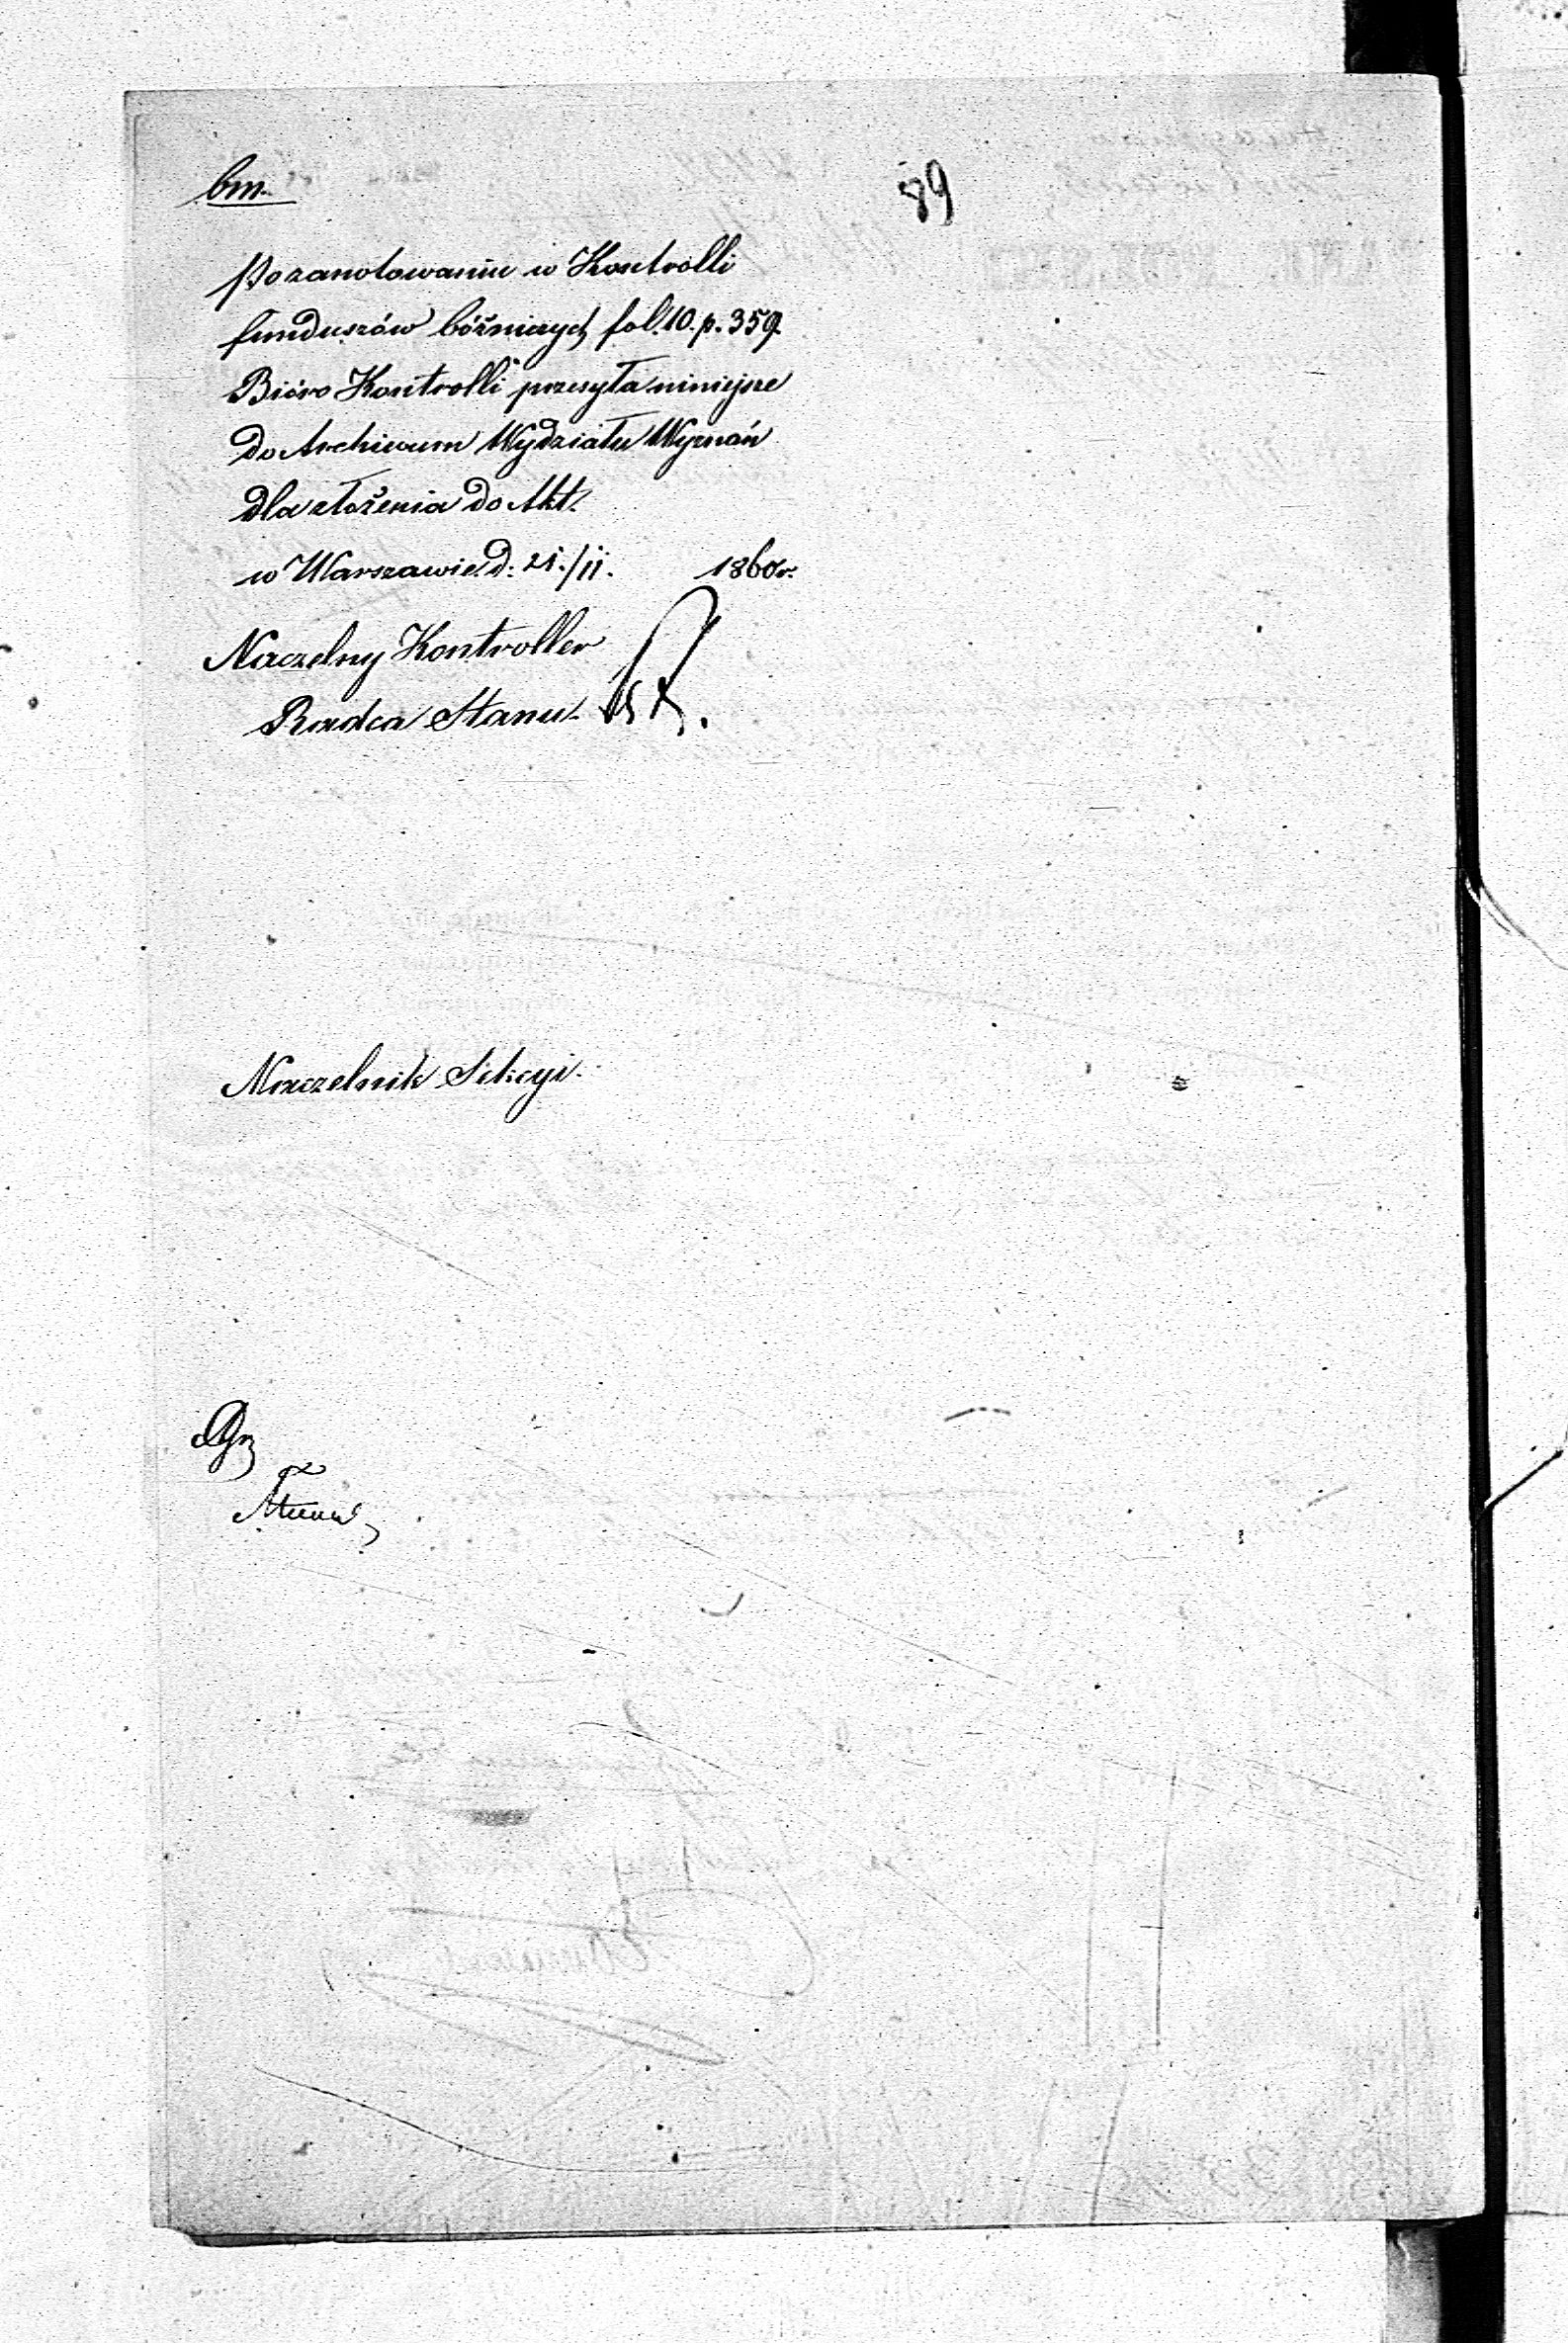 bm.
89
Po zanotowaniu w Kontrolli
funduszów bóżniczych fol. 10. p. 359.
Bióro Kontrolli przesyła niniejsze
do Archiwum Wydziału Wyznań
dla złożenia do Akt.
w Warszawie d: 21./11. 1860 r.
Naczelny Kontroller
Radca Stanu
Naczelnik Sekcyi.